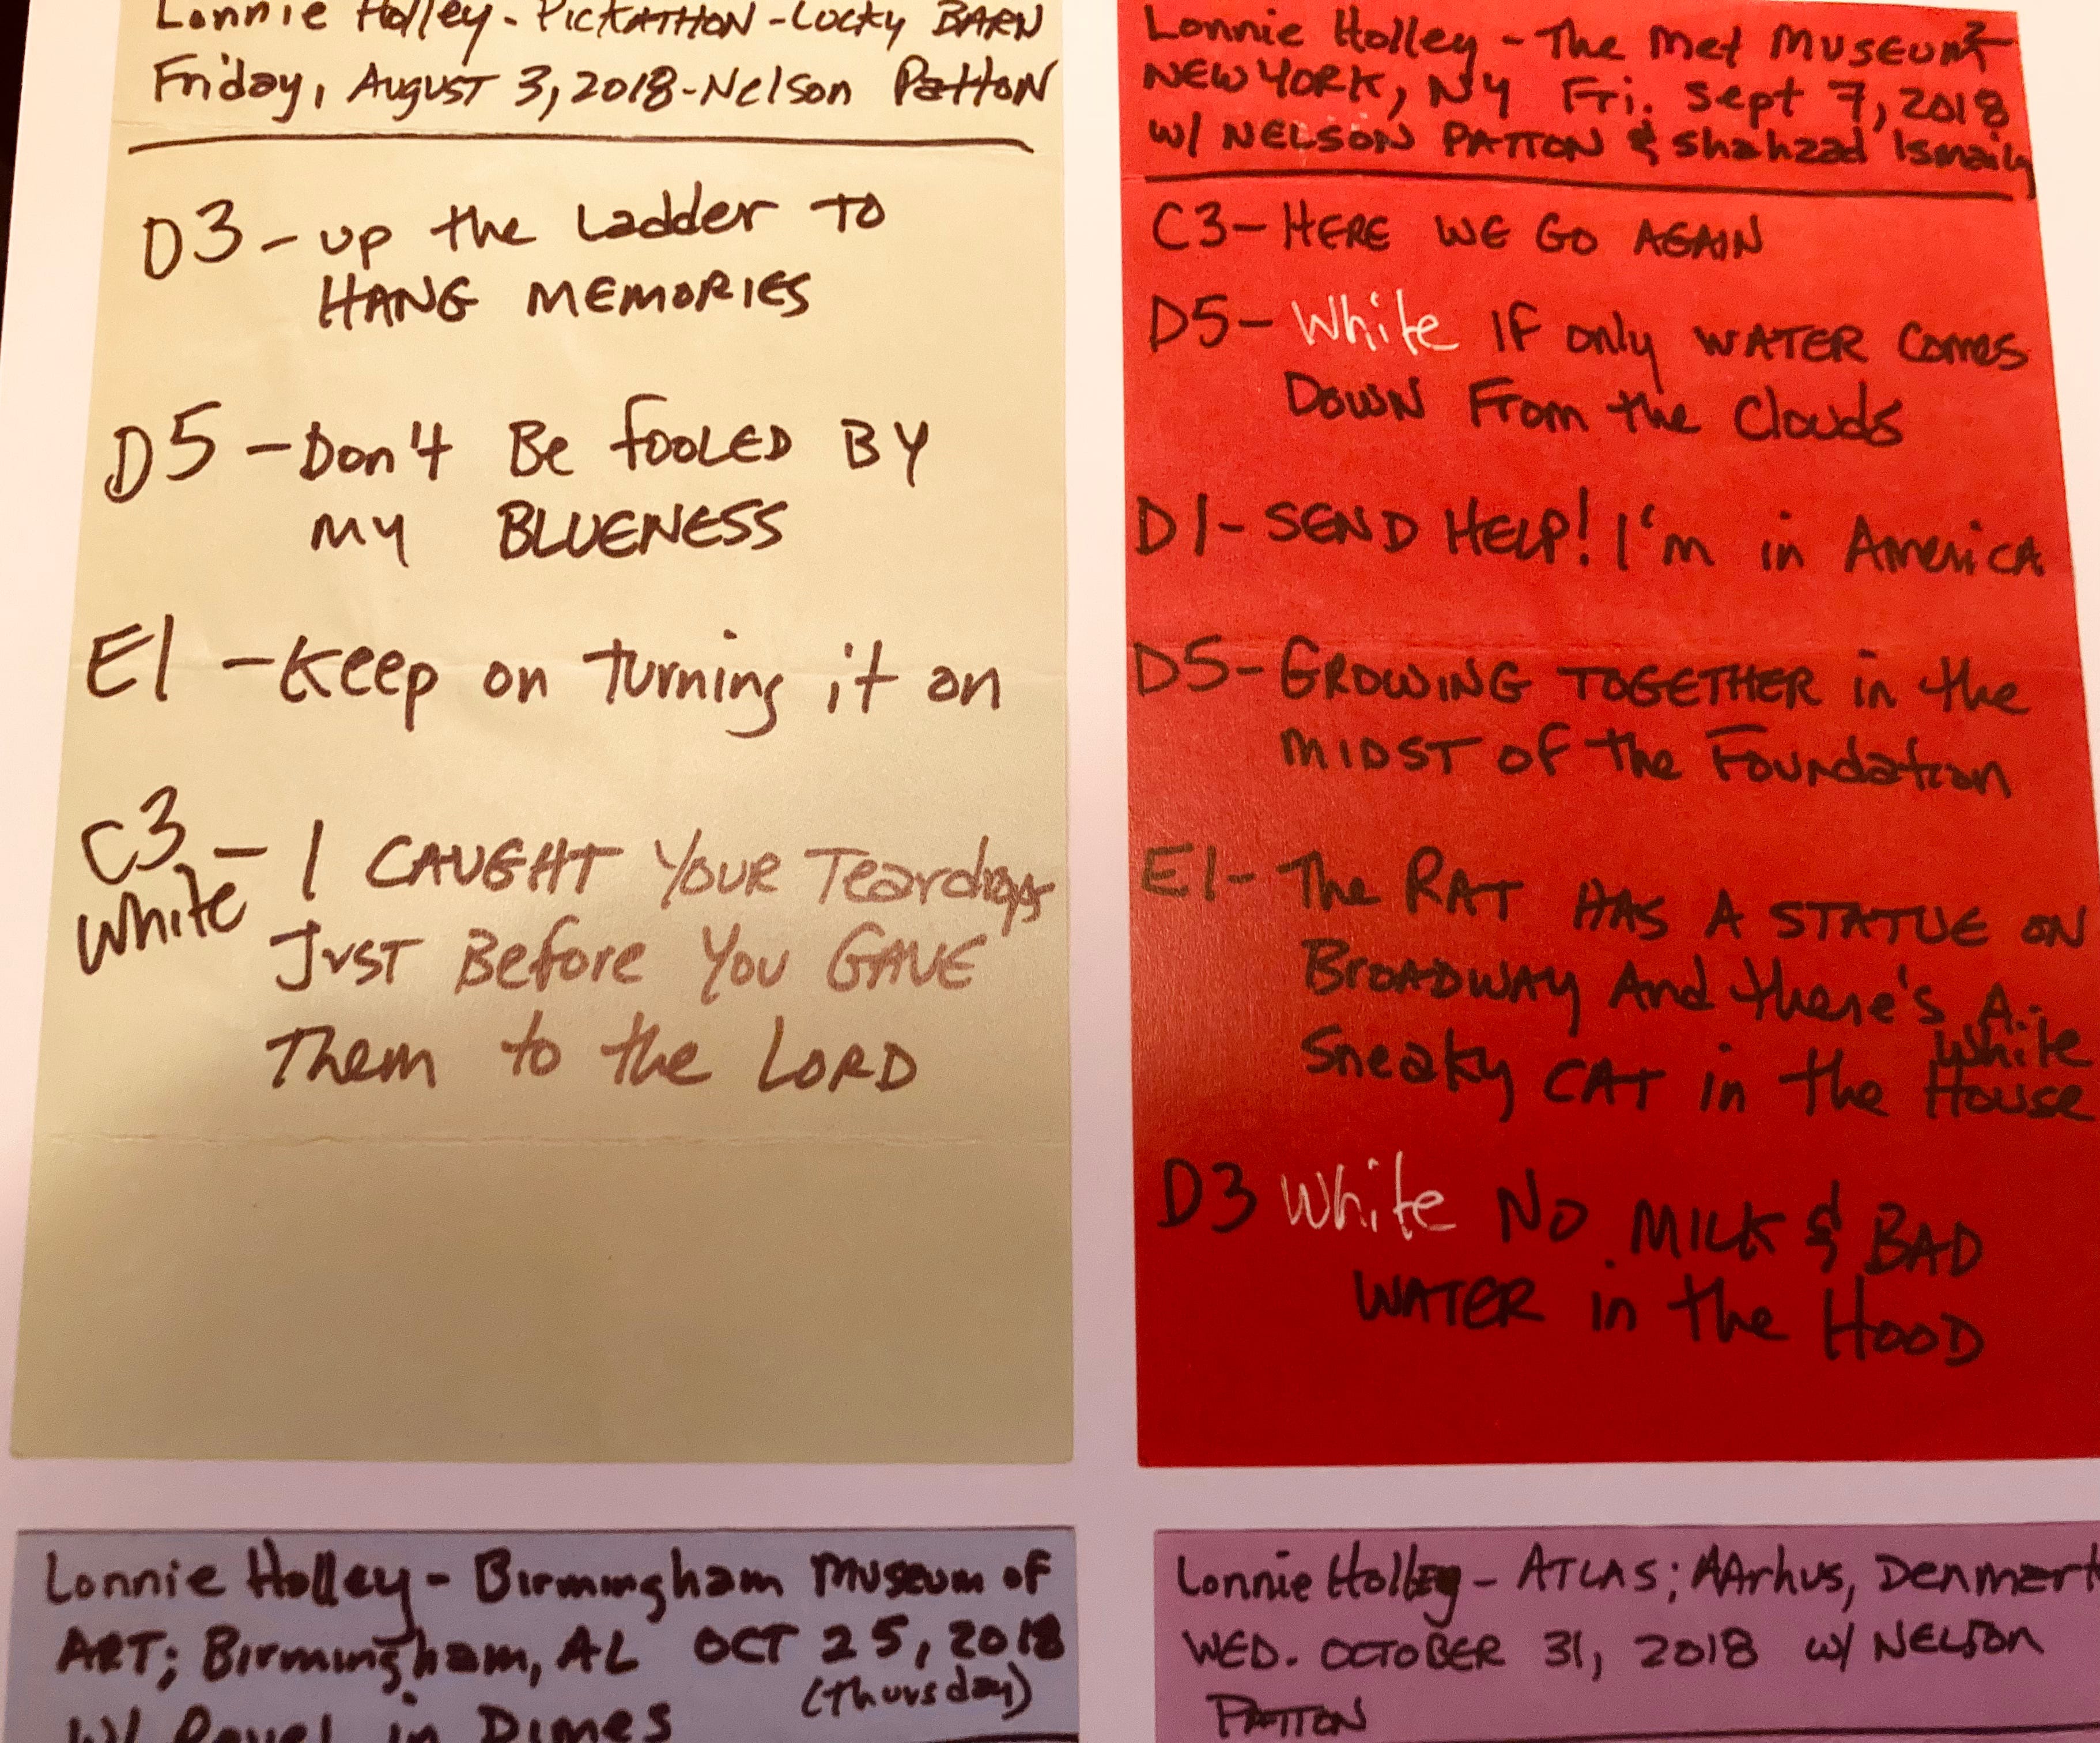 Lonnie Holley - PICKATHON - Lucky BARN
Friday, AUGUST 3, 2018 - Nelson PATTON
D3 - up the Ladder TO
HANG MEMORIES
D5 - Don't Be fooLED BY
MY BLUENESS
E1 - Keep on turning it on
C3 - I CAUGHT YOUR Teardrops
white
JUST Before YOU GAVE
Them to the LORD
Lonnie Holley - The Met MUSEUM
NEW YORK, NY Fri. Sept 7, 2018
w/ NELSON PATTON & Shahzad Ismaily
C3 - HERE WE GO AGAIN
D5 - White IF only WATER Comes
DOWN From the Clouds
D1 - SEND HELP! I'm in America
D5 - GROWING TOGETHER in the
MIDST OF the Foundation
E1 - The RAT HAS A STATUE ON
BROADWAY And there's A
Sneaky CAT in the White House
D3 White NO MILK & BAD
WATER in the HOOD
Lonnie Holley - Birmingham Museum of
ART; Birmingham, AL OCT 25, 2018
(thursday)
w/ in Dimes
Lonnie Holley - ATLAS; AArhus, Denmark
WED. OCTOBER 31, 2018 w/ NELSON
PATTON